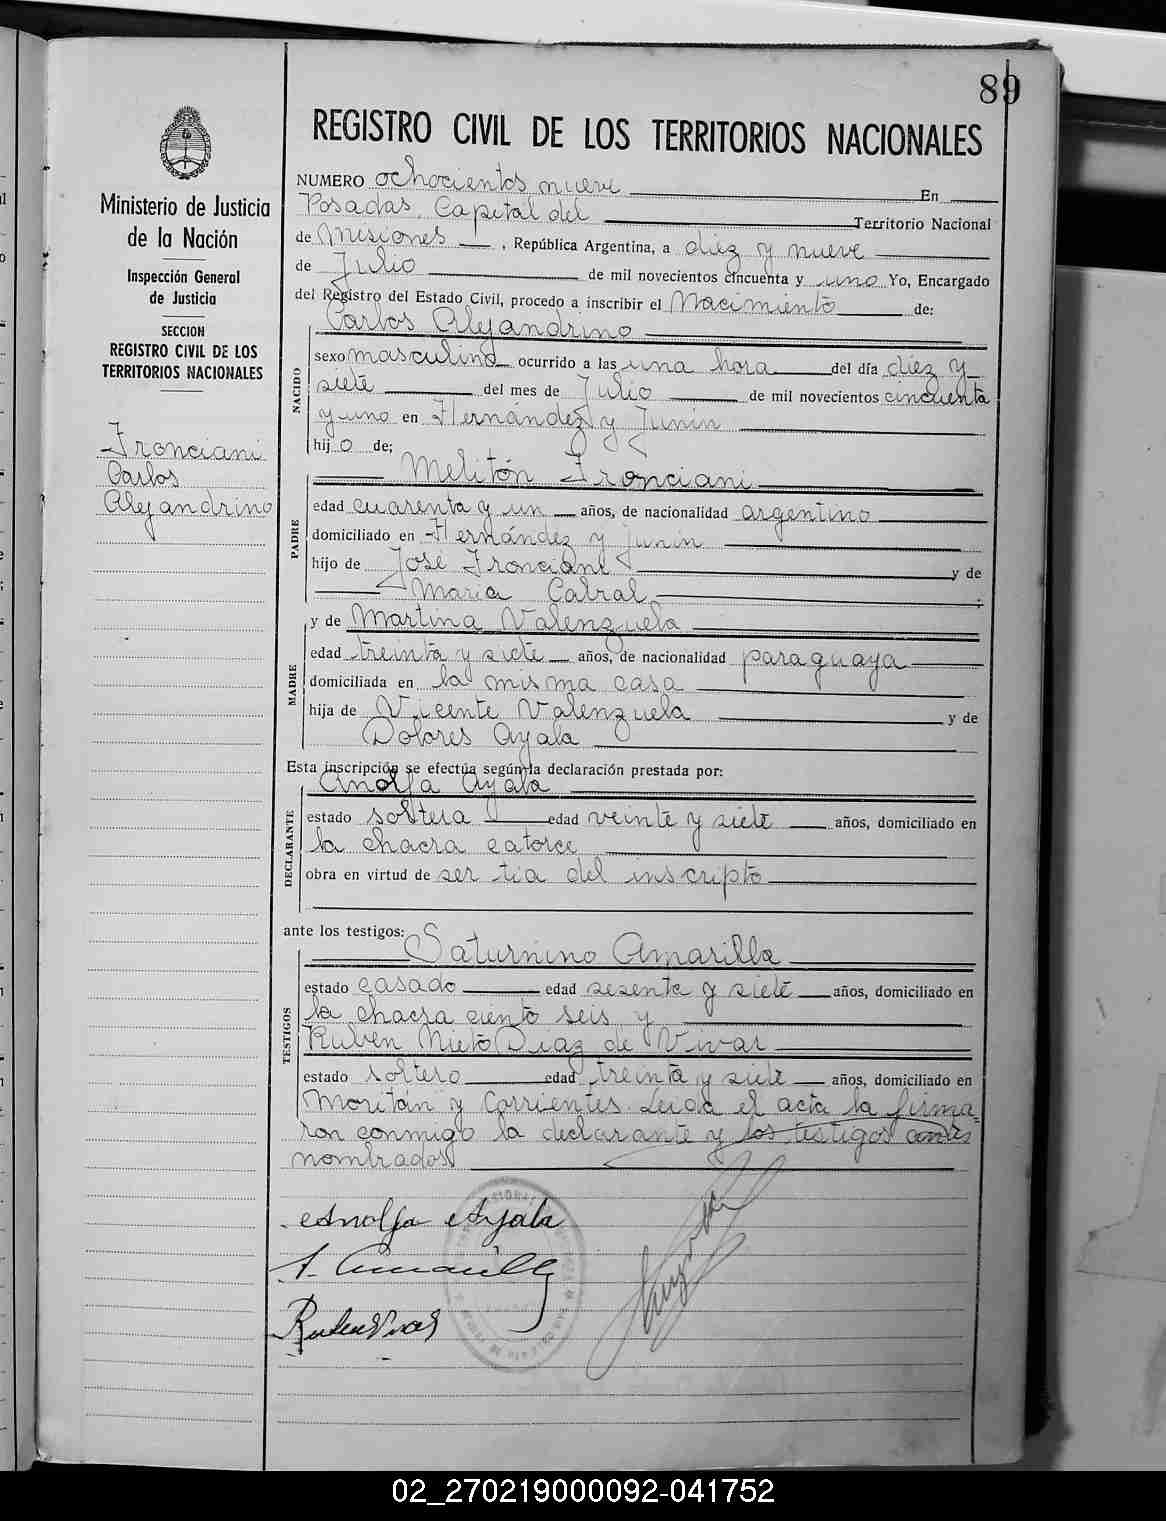 89
REGISTRO CIVIL DE LOS TERRITORIOS NACIONALES
Ministerio de Justicia
de la Nación
Inspección General
de Justicia
SECCION
REGISTRO CIVIL DE LOS
TERRITORIOS NACIONALES
Fronciani
Carlos
Alejandrino
NUMERO ochocientos nueve En
Posadas, Capital del Territorio Nacional
de Misiones, República Argentina, a diez y nueve
de Julio de mil novecientos cincuenta y uno Yo, Encargado
del Registro del Estado Civil, procedo a inscribir el Nacimiento de:
Carlos Alejandrino
NACIDO
sexo masculino ocurrido a las una hora del día diez y
siete del mes de Julio de mil novecientos cincuenta
y uno en Hernández y Junín
hijo de;
Melitón Fronciani
PADRE
edad cuarenta y un años, de nacionalidad argentino
domiciliado en Hernández y Junín
hijo de José Fronciani y de
María Cabral ;
y de Martina Valenzuela
MADRE
edad treinta y siete años, de nacionalidad paraguaya
domiciliada en la misma casa
hija de Vicente Valenzuela y de
Dolores Ayala
Esta inscripción se efectúa según la declaración prestada por:
Anolfa Ayala
DECLARANTE
estado soltera edad veinte y siete años, domiciliado en
la chacra catorce
obra en virtud de ser tía del inscripto
ante los testigos:
Saturnino Amarilla
TESTIGOS
estado casado edad sesenta y siete años, domiciliado en
la chacra ciento seis y
Rubén Nieto Diaz de Vivar
estado soltero edad treinta y siete años, domiciliado en
Moritán y Corrientes. Leida el acta la firma=
ron conmigo la declarante y los testigos
nombrados
Anolfa Ayala
S. Amarilla
Ruben Vivar
02_270219000092-041752